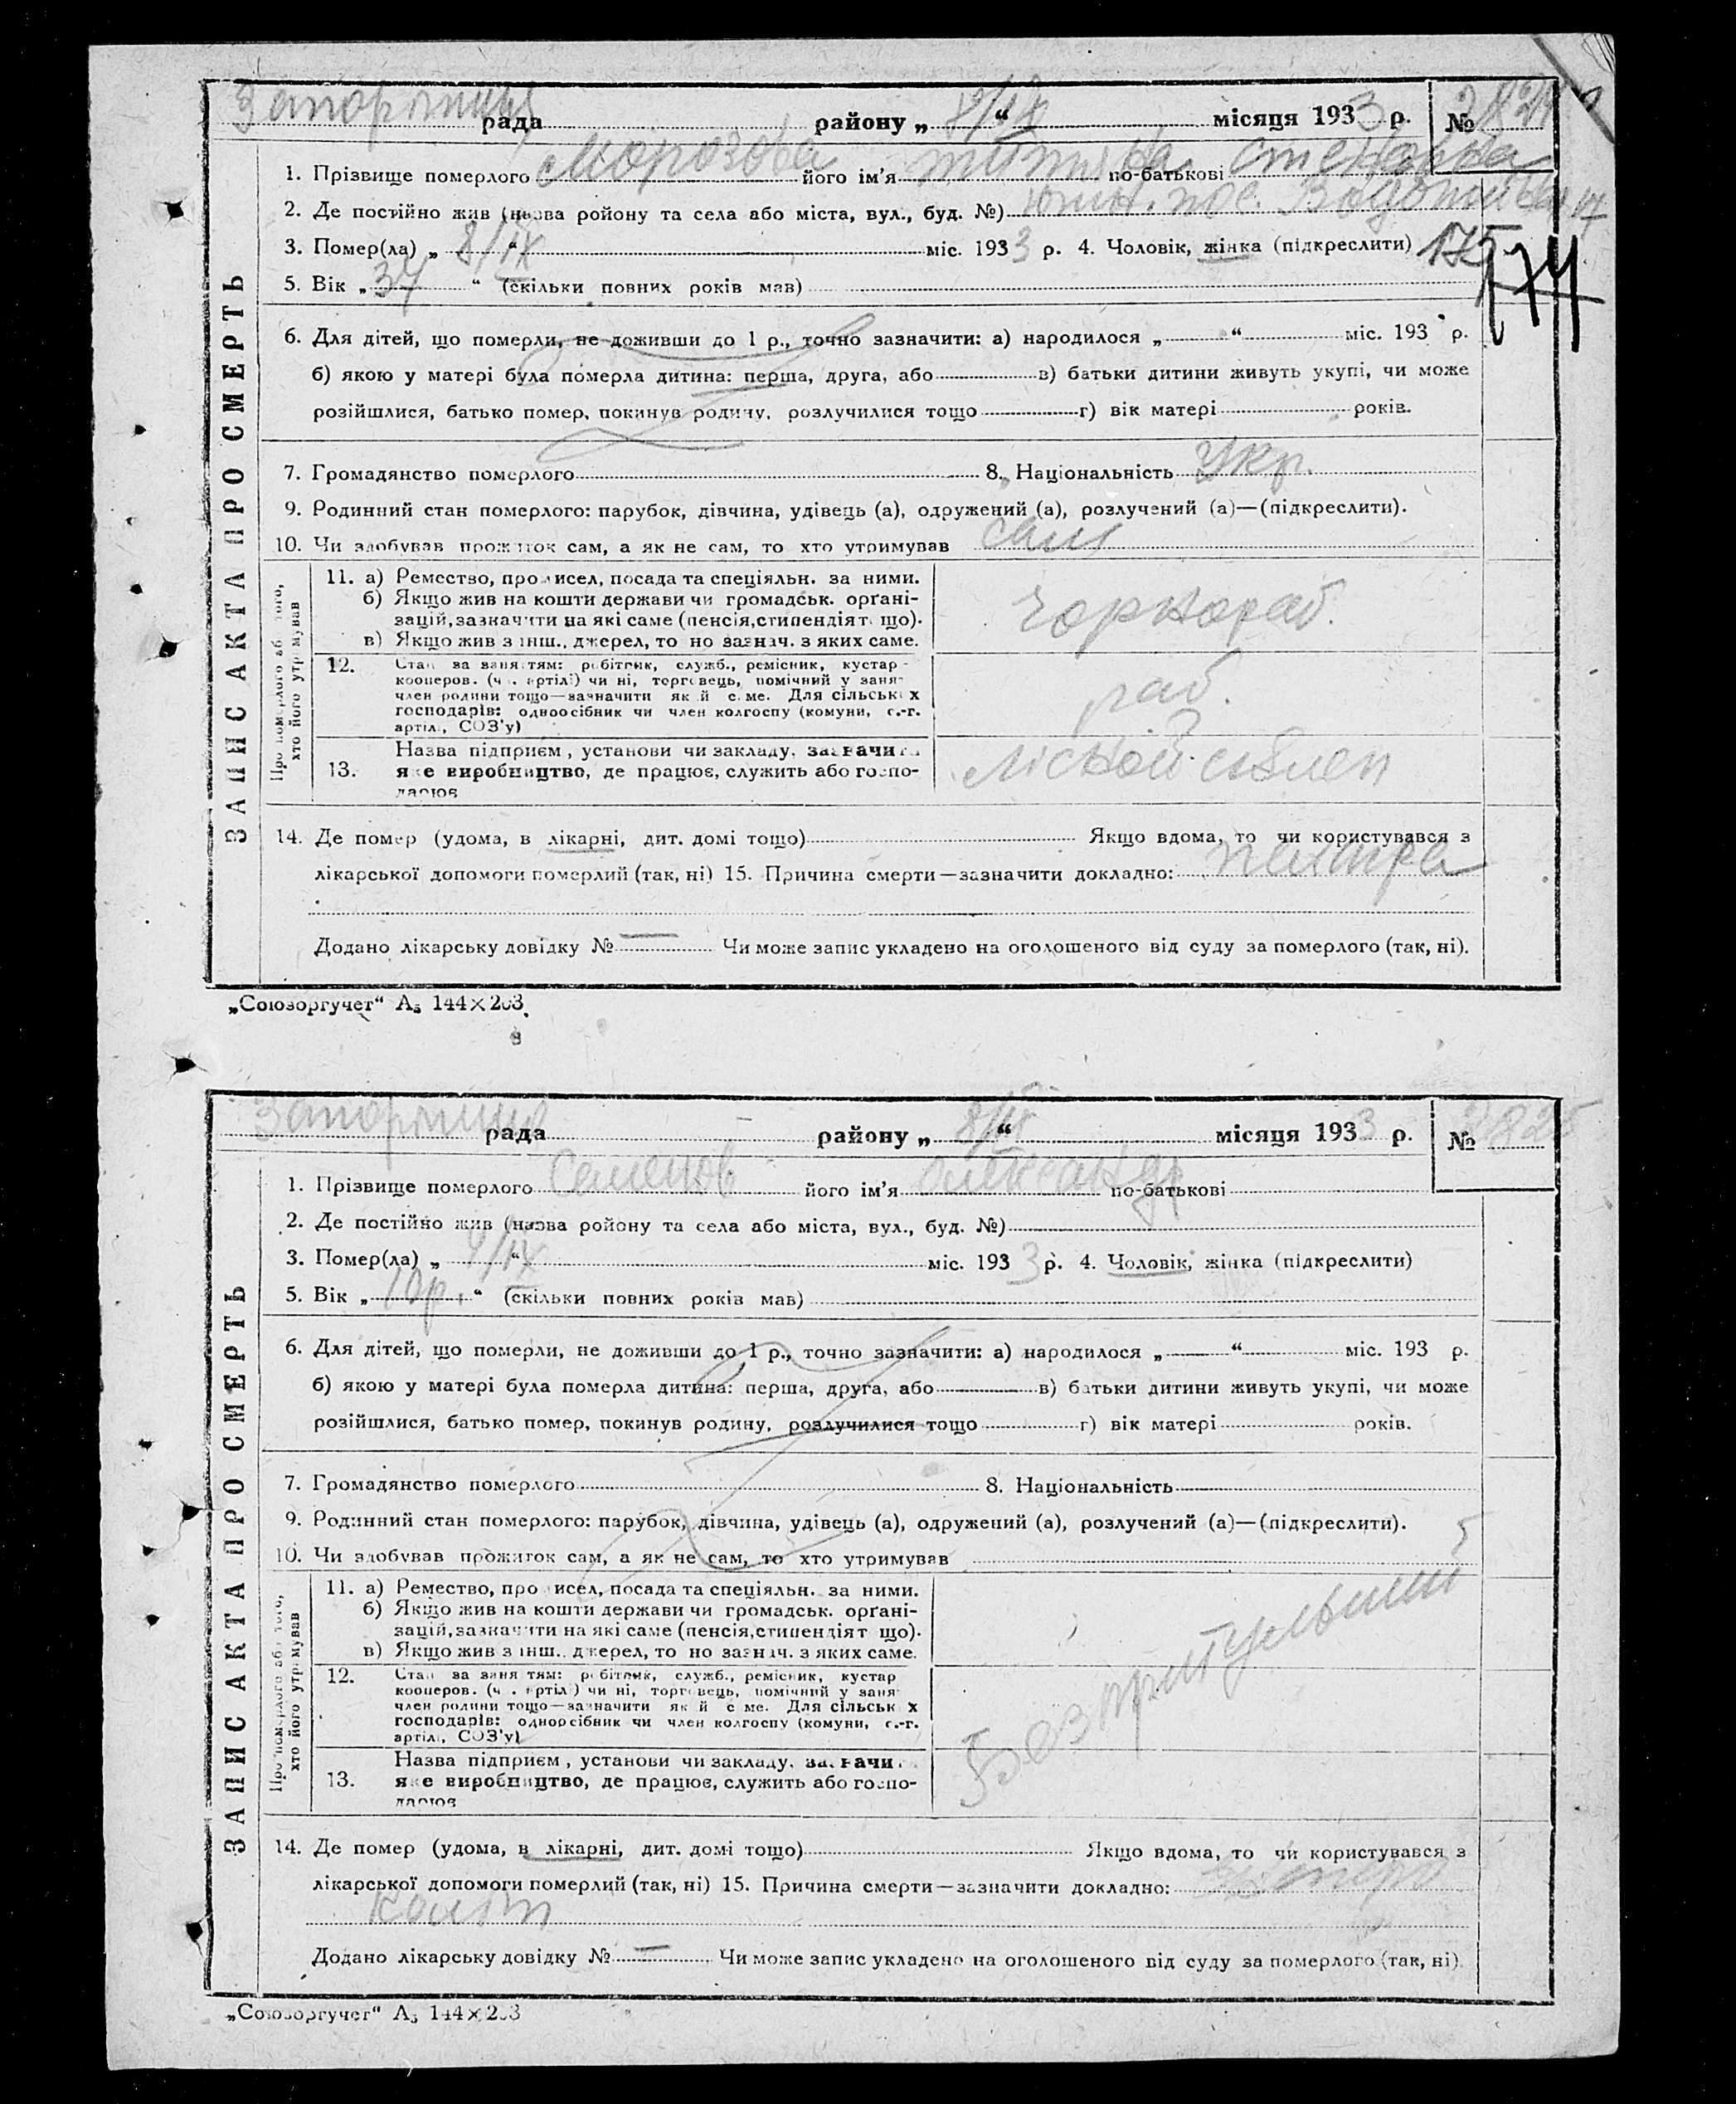 ЗАПИС АКТА ПРО СМЕРТЬ
рада района „ 8/IX “ місяця 1933 р. № 2824
1. Прізвище померлого Морозова його ім'я по-батькові
2. Де постійно жив (назва ройону та села або міста, вул., буд. №)
3. Помер(ла) „ 8/IX “ міс. 1933 р. 4. Чоловік, жінка (підкреслити) 175
174
5. Вік „ 37 “ (скільки повних років мав)
6. Для дітей, що померли, не доживши до 1 р., точно зазначити: а) народилося „ “ міс. 193 р.
б) якою у матері була померла дитина: перша, друга, або в) батьки дитини живуть укупі, чи може
розійшлися, батько помер, покинув родину, розлучилися тощо г) вік матері років.
7. Громадянство померлого 8. Національність Укр.
9. Родинний стан померлого: парубок, дівчина, удівець (а), одружений (а), розлучений (а)—(підкреслити).
10. Чи здобував прожиток сам, а як не сам, то хто утримував сам
Про померлого або того,
хто його утримував
11. а) Ремество, промисел, посада та спеціяльн. за ними.
б) Якщо жив на кошти держави чи громадськ. орґані-
зацій, зазначити на які саме (пенсія, стипендіят що).
в) Якщо жив з інш. джерел, то но зазнач. з яких саме.
чорнораб.
12. Стан за заняттям: робітник, служб., ремісник, кустар
кооперов. (ч. артілі) чи ні, торговець, помічний у заня-
член родини тощо—зазначити який саме. Для сільських
господарів: одноосібник чи член колгоспу (комуни, с.-г.
артілі, СОЗ'у)
раб.
13. Назва підприєм, установи чи закладу, зазначити
яке виробництво, де працює, служить або госпо-
дарює
14. Де помер (удома, в лікарні, дит. домі тощо) Якщо вдома, то чи користувався з
лікарської допомоги померлий (так, ні) 15. Причина смерти—зазначити докладно:
Додано лікарську довідку № — Чи може запис укладено на оголошеного від суду за померлого (так, ні).
„Союзоргучет“ А₅ 144×203
ЗАПИС АКТА ПРО СМЕРТЬ
рада району „ 8/IX “ місяця 1933 р. № 2825
1. Прізвище померлого Семенов його ім'я Олександр по-батькові
2. Де постійно жив (назва ройону та села або міста, вул., буд. №)
3. Помер(ла) „ /IX “ міс. 1933 р. 4. Чоловік, жінка (підкреслити)
5. Вік „ 10р. “ (скільки повних років мав)
6. Для дітей, що померли, не доживши до 1 р., точно зазначити: а) народилося „ “ міс. 193 р.
б) якою у матері була померла дитина: перша, друга, або в) батьки дитини живуть укупі, чи може
розійшлися, батько помер, покинув родину, розлучилися тощо г) вік матері років.
7. Громадянство померлого 8. Національність
9. Родинний стан померлого: парубок, дівчина, удівець (а), одружений (а), розлучений (а)—(підкреслити).
10. Чи здобував прожиток сам, а як не сам, то хто утримував
Про померлого або того,
хто його утримував
11. а) Ремество, промисел, посада та спеціяльн. за ними.
б) Якщо жив на кошти держави чи громадськ. орґані-
зацій, зазначити на які саме (пенсія, стипендіят що).
в) Якщо жив з інш. джерел, то но зазнач. з яких саме.
12. Стан за заняттям: робітник, служб., ремісник, кустар
кооперов. (ч. артілі) чи ні, торговець, помічний у заня-
член родини тощо—зазначити який саме. Для сільських
господарів: одноосібник чи член колгоспу (комуни, с.-г.
артілі, СОЗ'у)
13. Назва підприєм, установи чи закладу, зазначити
яке виробництво, де працює, служить або госпо-
дарює
14. Де помер (удома, в лікарні, дит. домі тощо) Якщо вдома, то чи користувався з
лікарської допомоги померлий (так, ні) 15. Причина смерти—зазначити докладно:
Додано лікарську довідку № — Чи може запис укладено на оголошеного від суду за померлого (так, ні)
„Союзоргучет“ А₅ 144×203